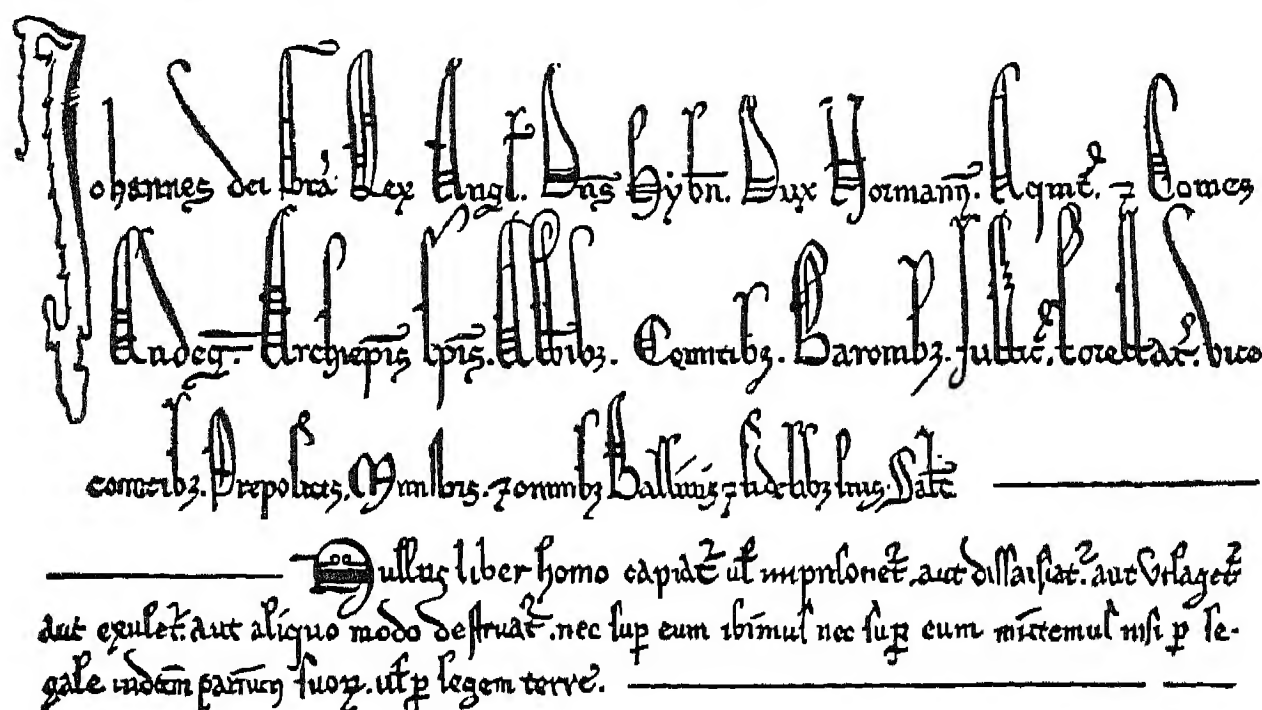 Johannes dei gra Rex Angl. Dns Hybn. Dux Normann. Aquit. ⁊ Comes
Andeg. Archiepis Epis. Abbibz. Comitibz. Baronibz. Justic. Forestar. vice
comitibz. Prepositis. Ministris. ⁊ omnibz Ballivis ⁊ fidelibz suis. Salt
Nullus liber homo capiat ul inprisonet. aut dissaisiat. aut Utlaget
aut exulet. aut aliquo modo destruat. nec sup eum ibimus nec sup eum mittemus nisi p le-
gale judicm parium suoꝝ. ul p legem terre.